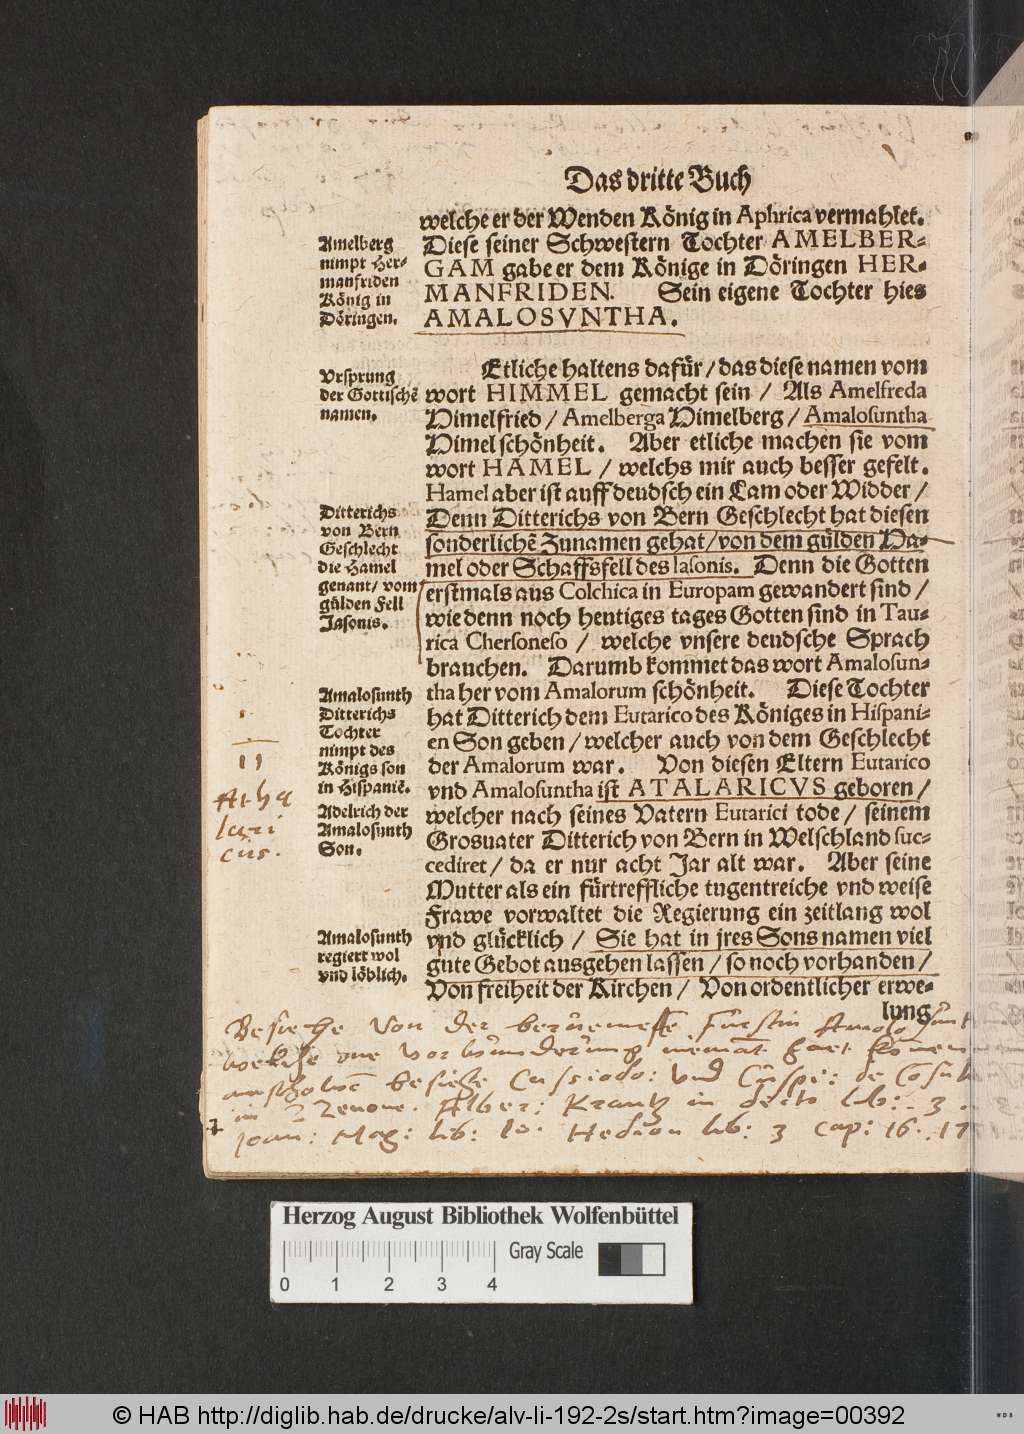 Das dritte Buch
welche er der Wenden König in Aphrica vermahlet.
Diese seiner Schwestern Tochter AMELBER-
GAM gabe er dem Könige in Döringen HER-
MANFRIDEN. Sein eigene Tochter hies
AMALOSVNTHA.
Amelberg
nimpt Her-
manfriden
König in
Döringen.
Etliche haltens dafür / das diese namen vom
wort HIMMEL gemacht sein / Als Amelfreda
Himelfried / Amelberga Himelberg / Amalosuntha
Himelschönheit. Aber etliche machen sie vom
wort HAMEL / welchs mir auch besser gefelt.
Hamel aber ist auff deudsch ein Lam oder Widder /
Denn Ditterichs von Bern Geschlecht hat diesen
sonderlichē Zunamen gehat / von dem gülden Ha-
mel oder Schaffsfell des Iasonis. Denn die Gotten
erstmals aus Colchica in Europam gewandert sind /
wie denn noch heutiges tages Gotten sind in Tau-
rica Chersoneso / welche vnsere deudsche Sprach
brauchen. Darumb kommet das wort Amalosun-
tha her vom Amalorum schönheit. Diese Tochter
hat Ditterich dem Eutarico des Königes in Hispani-
en Son geben / welcher auch von dem Geschlecht
der Amalorum war. Von diesen Eltern Eutarico
vnd Amalosuntha ist ATALARICVS geboren /
welcher nach seines Vatern Eutarici tode / seinem
Grosuater Ditterich von Bern in Welschland suc-
cediret / da er nur acht Jar alt war. Aber seine
Mutter als ein fürtreffliche tugentreiche vnd weise
Frawe vorwaltet die Regierung ein zeitlang wol
vnd glücklich / Sie hat in jres Sons namen viel
gute Gebot ausgehen lassen / so noch vorhanden /
Von freiheit der Kirchen / Von ordentlicher erwe-
lung
Vrsprung
der Gottischē
namen.
Ditterichs
von Bern
Geschlecht
die Hamel
genant / vom
gülden Fell
Jasonis.
Amalosunth
Ditterichs
Tochter
nimpt des
Königs son
in Hispaniē.
Adelrich der
Amalosunth
Son.
Amalosunth
regiert wol
vnd löblich.
11
Atha
lari
cus.
Besiehe von der berümeste Fürstin
besiehe Cassiodo: vnd Cuspi: de
in Zenone. Alber: Krantz in lib: 3.
Joan: Mag: lib: 10. Hedion lib: 3 cap: 16. 17
Herzog August Bibliothek Wolfenbüttel
Gray Scale
0 1 2 3 4
© HAB http://diglib.hab.de/drucke/alv-li-192-2s/start.htm?image=00392